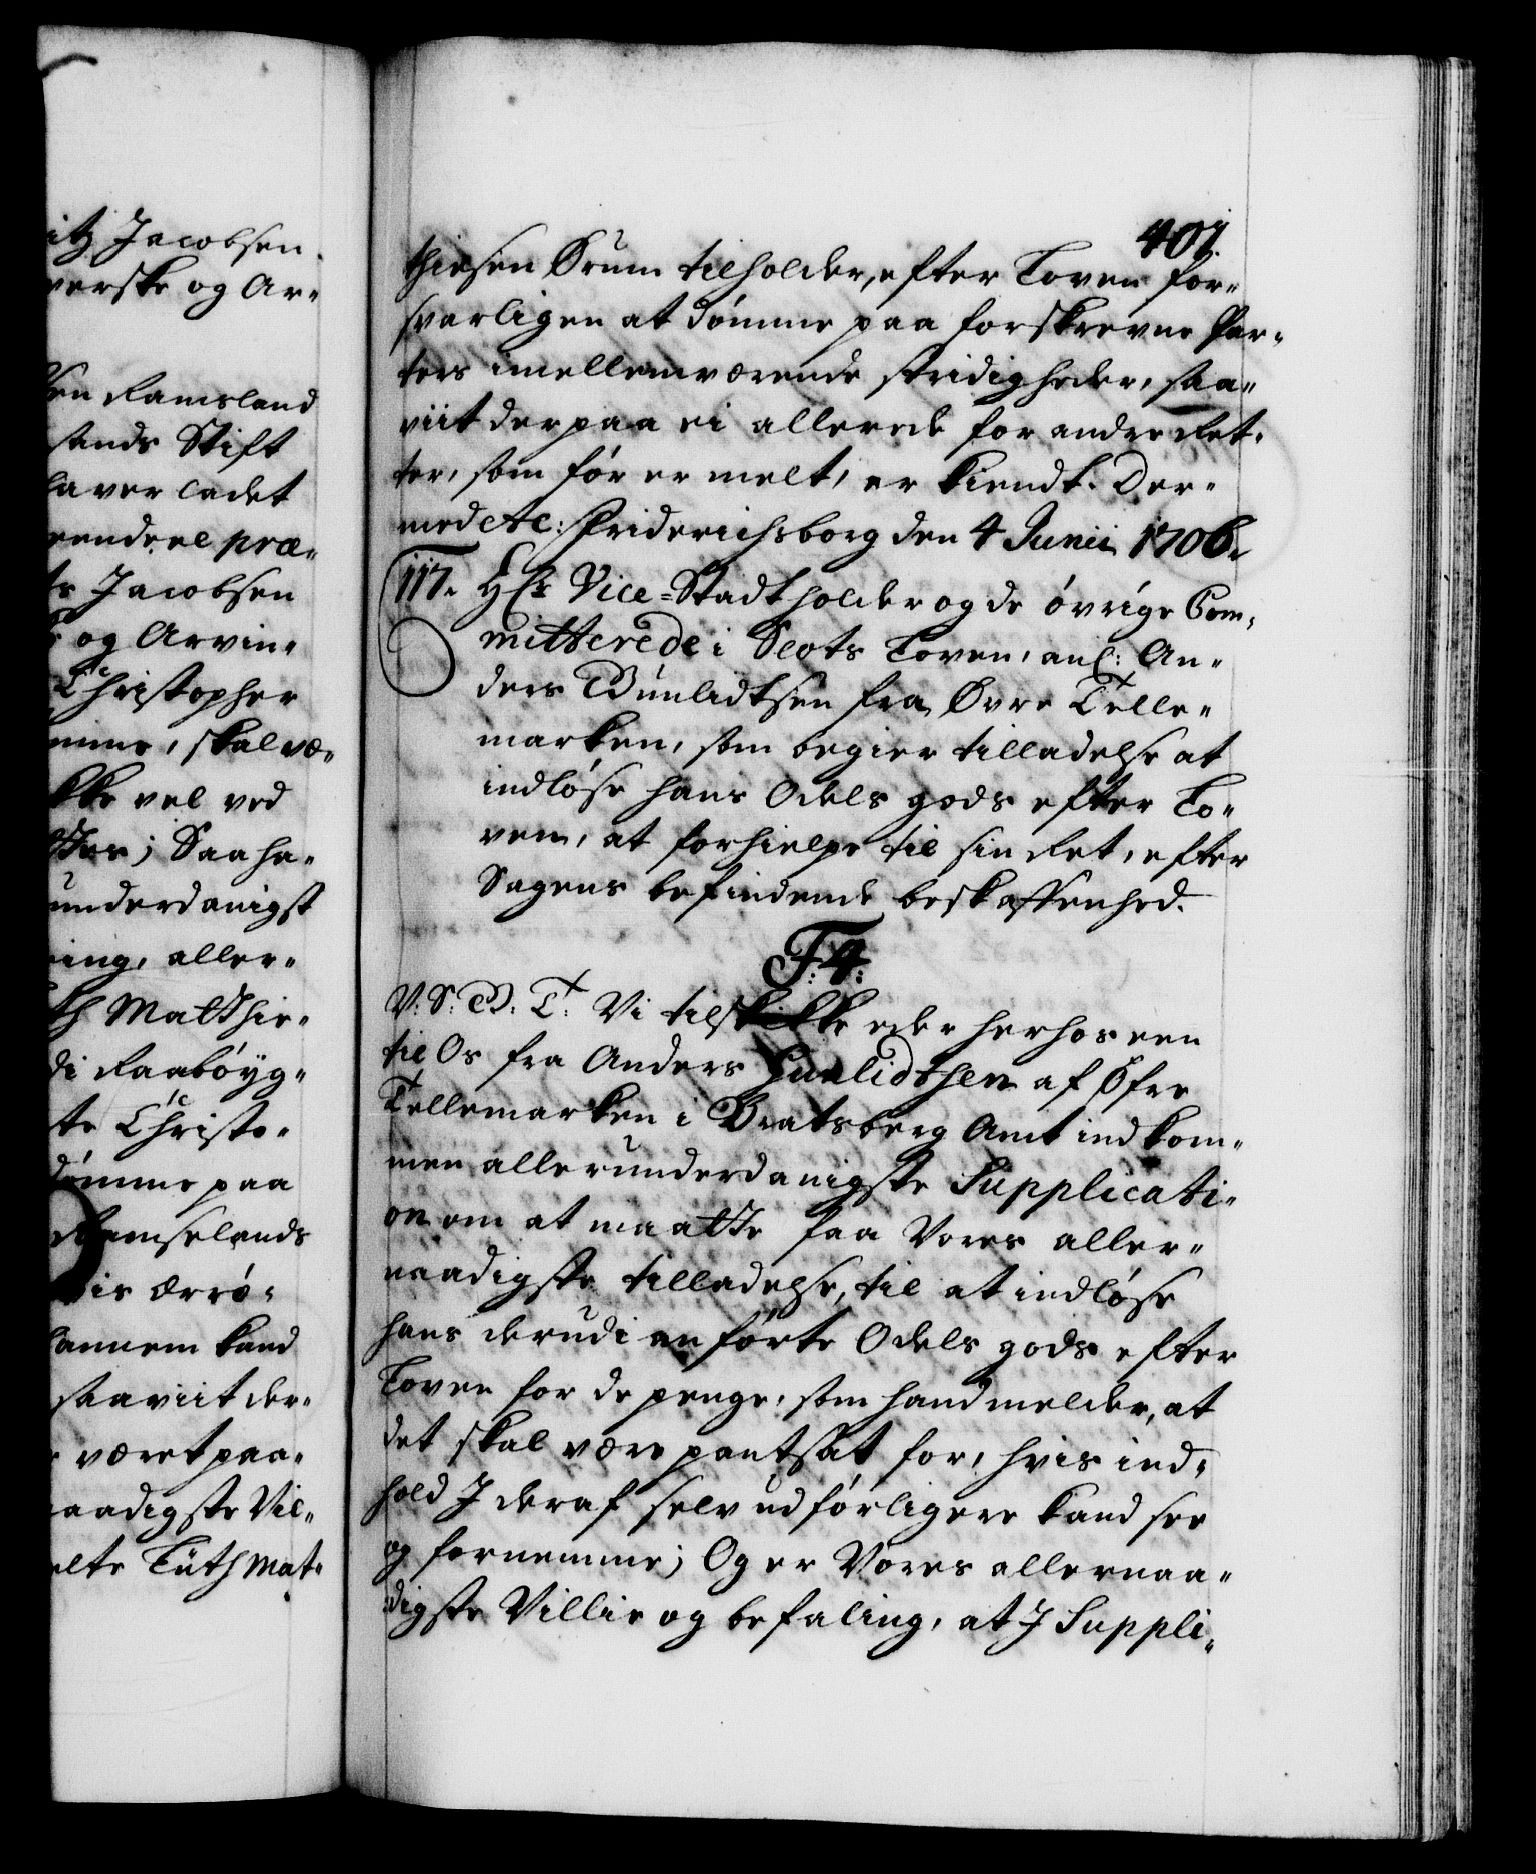 itz Jacobsen
verske og Ar-
en Ramsland
sands Stift
laver ladet
eendeel præ-
ts Jacobsen
og Arvin-
Christopher
mme, skal væ-
kke vel ved
ttes; Saa ha-
underdanigst
ing, aller-
th Matthie-
di Raabóyg-
te Christo-
dømme paa
Ramselands
is ærrø-
annem kand
saaviit der-
været paa-
aadigste Vil-
elte Tüth Mat-
407.
thiesen Ørum tilholder, efter Loven for-
svarligen at dømme paa forskrevne Par-
ters imellemværende stridigheder, saa-
viit derpaa ei allerede for andre Ret-
ter, som før er melt, er kiendt. Der-
med etc: Friderichsborg den 4 Junii 1706.
117. H/r Vice-Stadtholder og de óvrige Com-
mitterede i Slots Loven, anl: An-
ders Gunlidtsen fra Øvre Telle-
marken, som begier tilladelse at
indløse hans Odels gods efter Lo-
ven, at forhielpe til sin Ret, efter
Sagens befindende beskaffenhed.
F: 4:
V: S: G: T: Vi tilskikke eder herhos een
til Os fra Anders Gunlidtsen af Øfre
Tellemarken i Bratsberg Amt indkom-
men allerunderdanigste Supplicati-
on om at maatte faa Vores aller-
naadigste tilladelse, til at indløse
hans derudi anførte Odels gods efter
Loven for de penge, som hand melder, at
det skal være pantsat for, hvis ind-
hold I deraf selv udførligere kand see
og fornemme; Og er Vores allernaa-
digste Villie og befaling, at I Suppli-